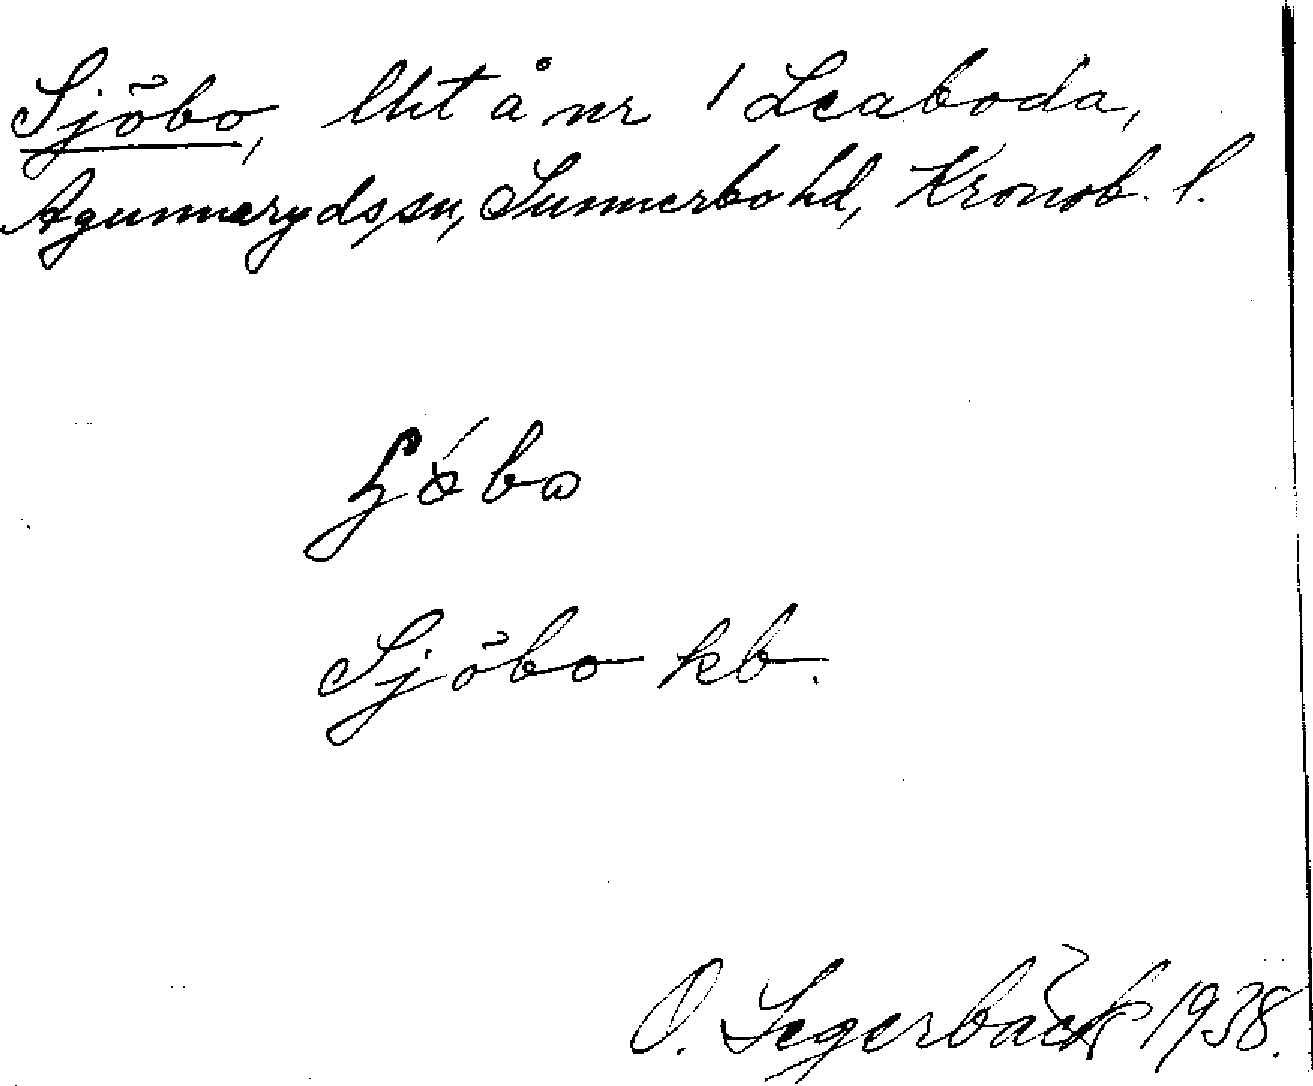 Sjöbo, lht å nr 1 Leaboda,
Agunnaryds sn, Sunnerbo hd, Kronob. l.
Sjöbo kb.
O. Segerbäck 1938.